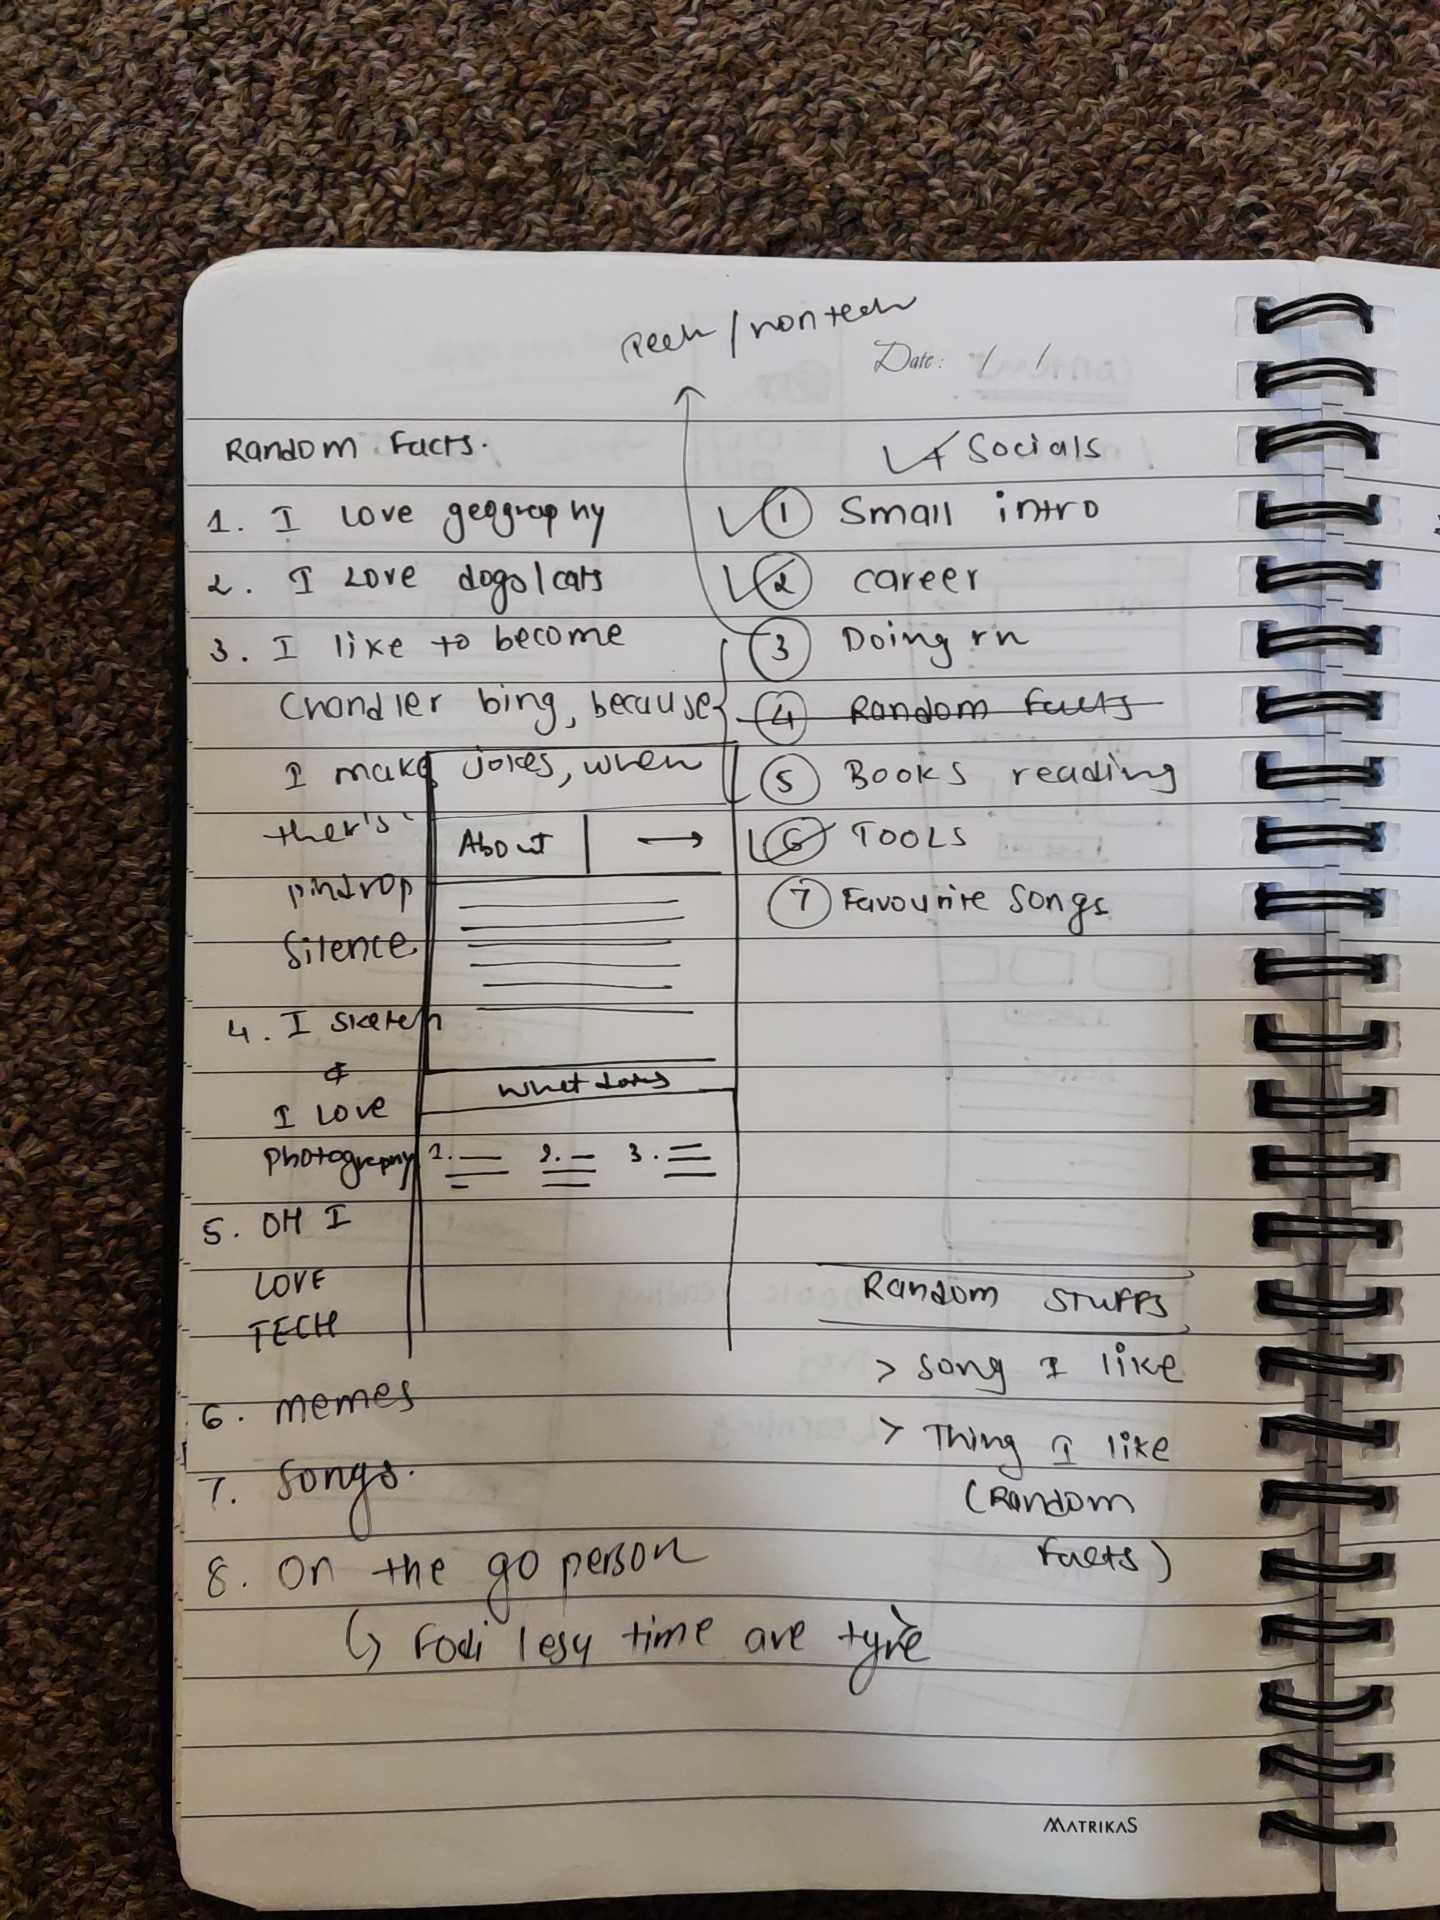 / nontech
Date: / /
Random Facts.
1. I Love geography
2. I Love dogs/cats
3. I like to become
Chandler bing, because
I make jokes, when
ther's
pindrop
Silence
4. I sketch
&
I Love
photography
5. OH I
LOVE
TECH
6. memes
7. Songs.
8. On the go person
time are
About →
What
1. 2. 3.
Socials
1 Small intro
2 career
3 Doing rn
4 Random Facts
5 Books reading
6 TOOLS
7 Favourite Songs
Random STUFFS
> Song I like
> Thing I like
(Random
Facts)
MATRIKAS